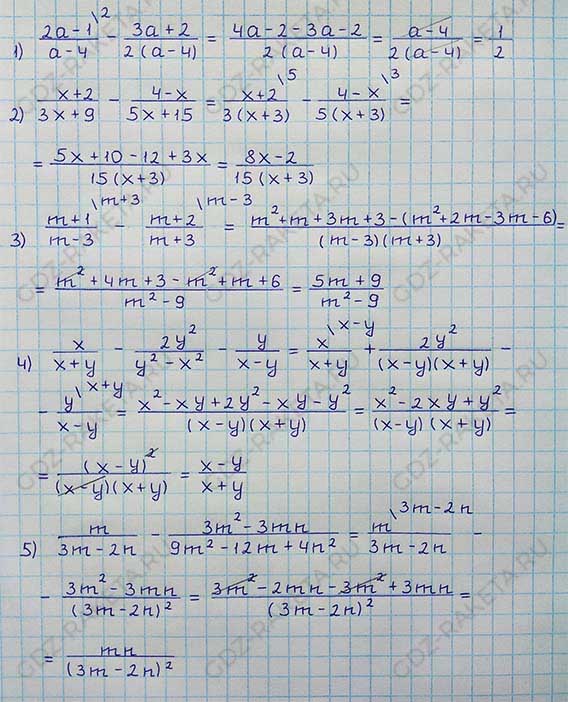 1) (2a-1)\2/(a-4) - (3a+2)/(2(a-4)) = (4a-2-3a-2)/(2(a-4)) = (a-4)/(2(a-4)) = 1/2
2) (x+2)/(3x+9) - (4-x)/(5x+15) = (x+2)\5/(3(x+3)) - (4-x)\3/(5(x+3)) =
= (5x+10-12+3x)/(15(x+3)) = (8x-2)/(15(x+3))
3) (m+1)\m+3/(m-3) - (m+2)\m-3/(m+3) = (m²+m+3m+3-(m²+2m-3m-6))/((m-3)(m+3)) =
= (m²+4m+3-m²+m+6)/(m²-9) = (5m+9)/(m²-9)
4) x/(x+y) - 2y²/(y²-x²) - y/(x-y) = x\x-y/(x+y) + 2y²/((x-y)(x+y)) -
- y\x+y/(x-y) = (x²-xy+2y²-xy-y²)/((x-y)(x+y)) = (x²-2xy+y²)/((x-y)(x+y)) =
= (x-y)²/((x-y)(x+y)) = (x-y)/(x+y)
5) m/(3m-2n) - (3m²-3mn)/(9m²-12m+4n²) = m\3m-2n/(3m-2n) -
- (3m²-3mn)/(3m-2n)² = (3m²-2mn-3m²+3mn)/(3m-2n)² =
= mn/(3m-2n)²
GDZ-RAKETA.RU